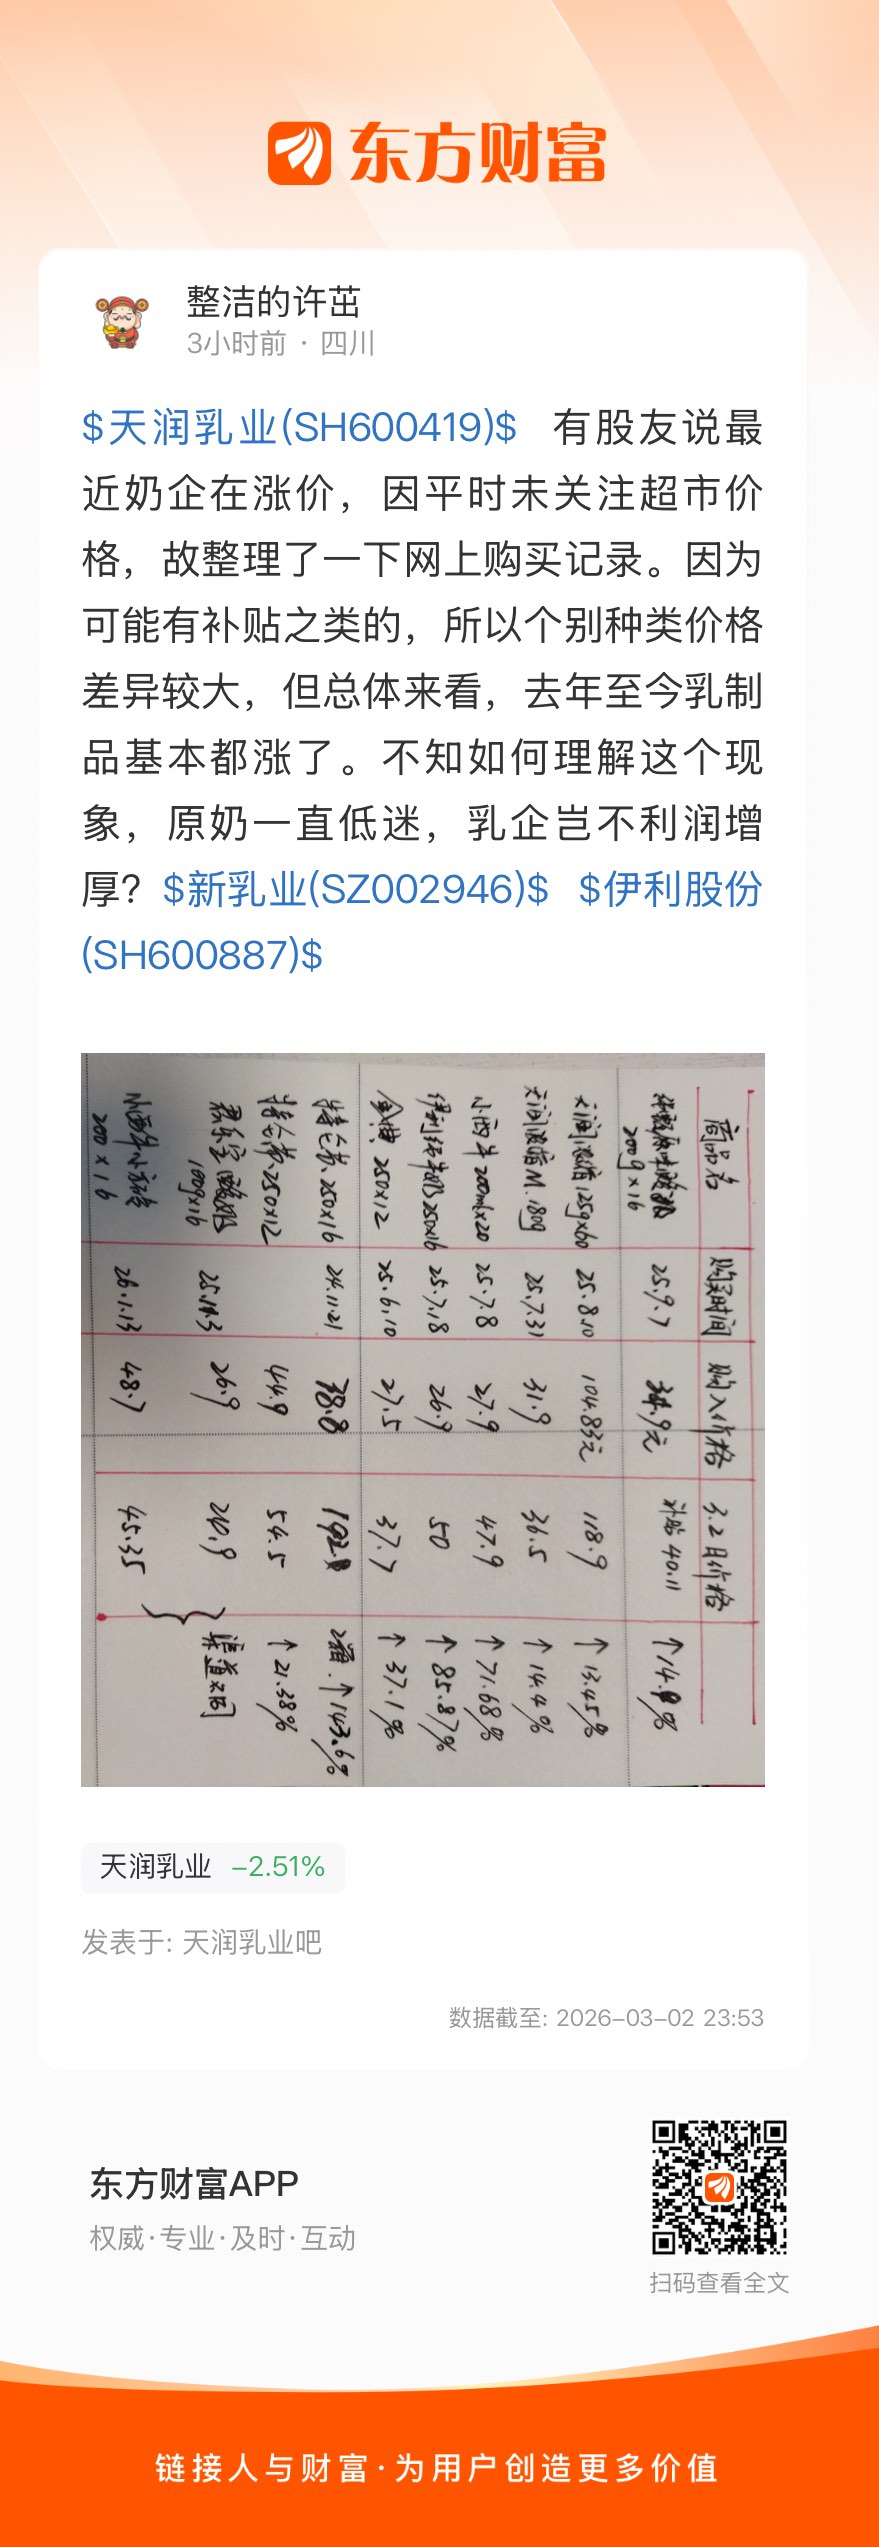 东方财富
整洁的许茁
3小时前 · 四川
$天润乳业(SH600419)$ 有股友说最
近奶企在涨价，因平时未关注超市价
格，故整理了一下网上购买记录。因为
可能有补贴之类的，所以个别种类价格
差异较大，但总体来看，去年至今乳制
品基本都涨了。不知如何理解这个现
象，原奶一直低迷，乳企岂不利润增
厚？$新乳业(SZ002946)$ $伊利股份
(SH600887)$
商品名 购买时间 购入价格 3.2日价格
200g×16 25.9.7 34.9元 补贴 40.11
天润浓缩125g×60 25.8.10 104.83元 118.9 ↑13.45%
天润浓缩M.180g 25.7.31 31.9 36.5 ↑14.4%
小西牛200ml×20 25.7.8 27.9 47.9 ↑71.68%
伊利纯牛奶250×16 25.7.18 26.9 50 ↑85.87%
金典.250×12 25.6.10 27.5 37.7 ↑37.1%
特仑苏.250×16 24.11.21 ↑143.6%
特仑苏.250×12 44.9 54.5 ↑21.38%
君乐宝
100g×16 26.9 20.9
200×16 26.1.13 48.7 45.35
天润乳业 -2.51%
发表于: 天润乳业吧
数据截至: 2026-03-02 23:53
东方财富APP
权威·专业·及时·互动
扫码查看全文
链接人与财富·为用户创造更多价值